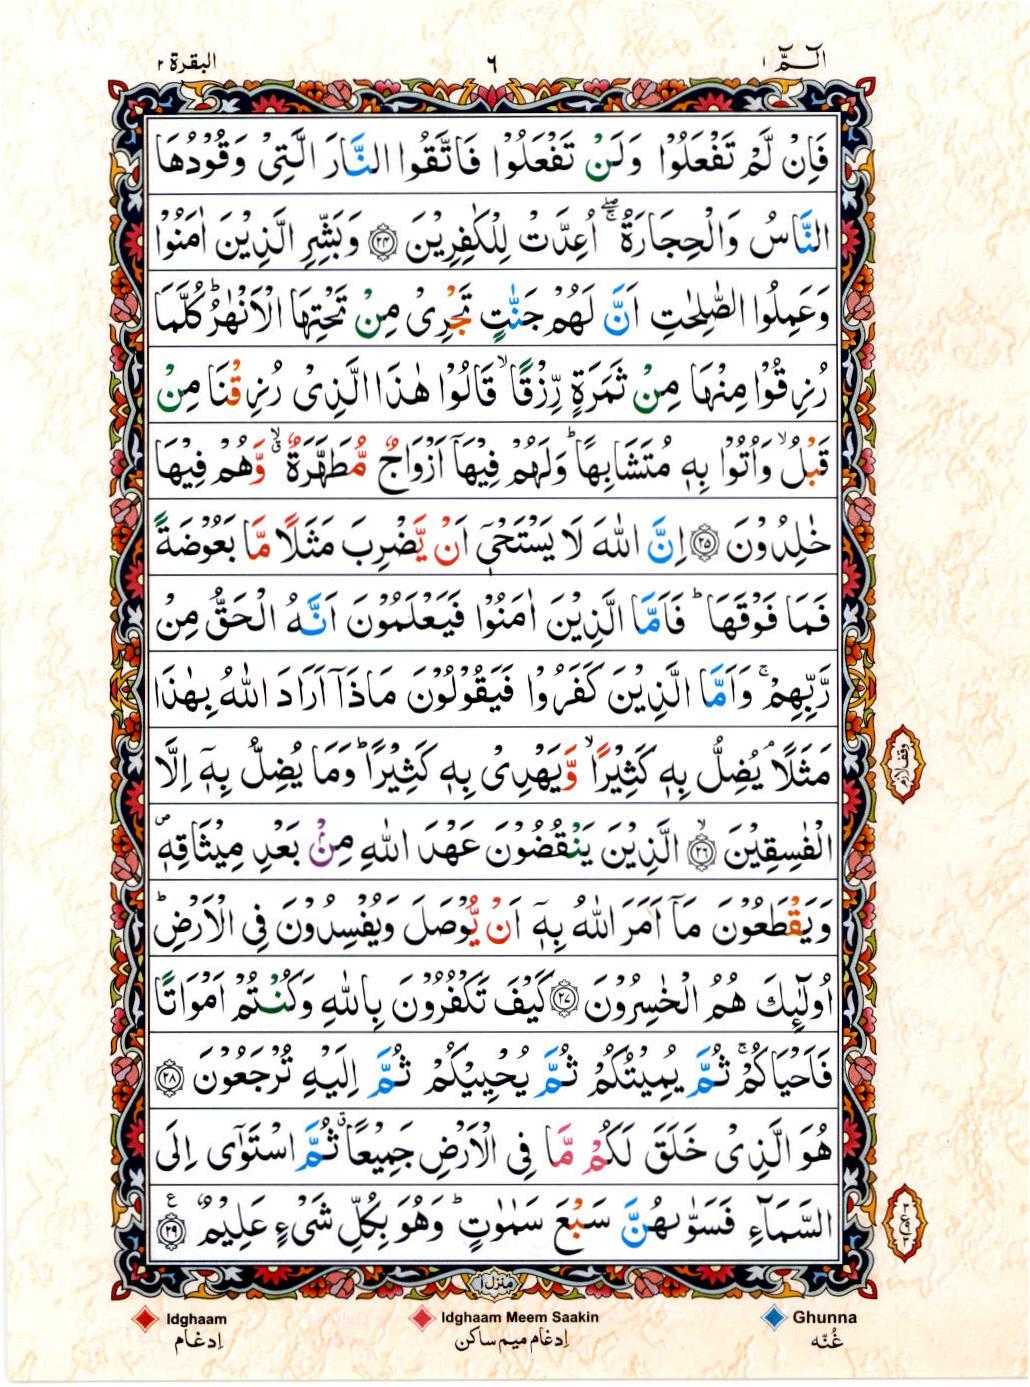 الٓمّٓ ١
٦
البقرة ٢
فَاِنْ لَّمْ تَفْعَلُوْا وَلَنْ تَفْعَلُوْا فَاتَّقُوا النَّارَ الَّتِیْ وَقُوْدُهَا
النَّاسُ وَالْحِجَارَةُ ۖۚ اُعِدَّتْ لِلْكٰفِرِیْنَ ﴿۲۴﴾ وَبَشِّرِ الَّذِیْنَ اٰمَنُوْا
وَعَمِلُوا الصّٰلِحٰتِ اَنَّ لَهُمْ جَنّٰتٍ تَجْرِیْ مِنْ تَحْتِهَا الْاَنْهٰرُ ؕ كُلَّمَا
رُزِقُوْا مِنْهَا مِنْ ثَمَرَةٍ رِّزْقًا ۙ قَالُوْا هٰذَا الَّذِیْ رُزِقْنَا مِنْ
قَبْلُ ۙ وَاُتُوْا بِهٖ مُتَشَابِهًا ؕ وَلَهُمْ فِیْهَاۤ اَزْوَاجٌ مُّطَهَّرَةٌ ۙۗ وَّهُمْ فِیْهَا
خٰلِدُوْنَ ﴿۲۵﴾ اِنَّ اللّٰهَ لَا یَسْتَحْیٖۤ اَنْ یَّضْرِبَ مَثَلًا مَّا بَعُوْضَةً
فَمَا فَوْقَهَا ؕ فَاَمَّا الَّذِیْنَ اٰمَنُوْا فَیَعْلَمُوْنَ اَنَّهُ الْحَقُّ مِنْ
رَّبِّهِمْ ۚ وَاَمَّا الَّذِیْنَ كَفَرُوْا فَیَقُوْلُوْنَ مَاذَاۤ اَرَادَ اللّٰهُ بِهٰذَا
مَثَلًا ۘ یُضِلُّ بِهٖ كَثِیْرًا ۙ وَّیَهْدِیْ بِهٖ كَثِیْرًا ؕ وَمَا یُضِلُّ بِهٖۤ اِلَّا
الْفٰسِقِیْنَ ﴿۲۶﴾ ۙ الَّذِیْنَ یَنْقُضُوْنَ عَهْدَ اللّٰهِ مِنْۢ بَعْدِ مِیْثَاقِهٖ ۪
وَیَقْطَعُوْنَ مَاۤ اَمَرَ اللّٰهُ بِهٖۤ اَنْ یُّوْصَلَ وَیُفْسِدُوْنَ فِی الْاَرْضِ ؕ
اُولٰٓئِكَ هُمُ الْخٰسِرُوْنَ ﴿۲۷﴾ كَیْفَ تَكْفُرُوْنَ بِاللّٰهِ وَكُنْتُمْ اَمْوَاتًا
فَاَحْیَاكُمْ ۚ ثُمَّ یُمِیْتُكُمْ ثُمَّ یُحْیِیْكُمْ ثُمَّ اِلَیْهِ تُرْجَعُوْنَ ﴿۲۸﴾
هُوَ الَّذِیْ خَلَقَ لَكُمْ مَّا فِی الْاَرْضِ جَمِیْعًا ۗ ثُمَّ اسْتَوٰۤی اِلَی
السَّمَآءِ فَسَوّٰىهُنَّ سَبْعَ سَمٰوٰتٍ ؕ وَهُوَ بِكُلِّ شَیْءٍ عَلِیْمٌ ﴿۲۹﴾ ع
وقف لازم
منزل ۱
Idghaam
ادغام
Idghaam Meem Saakin
ادغام میم ساکن
Ghunna
غُنّه